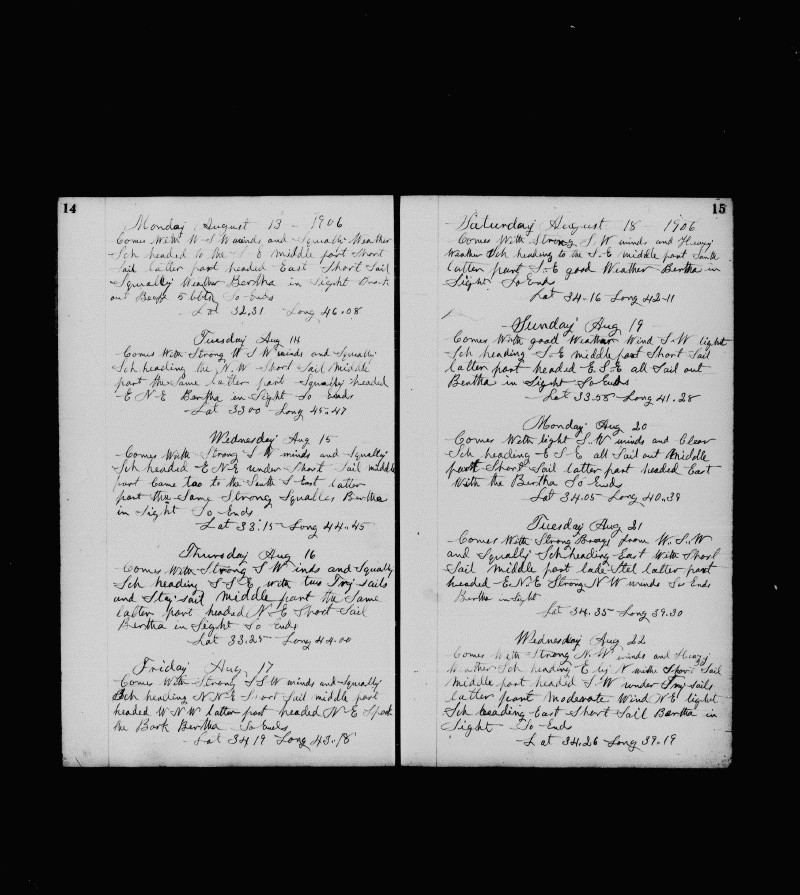 14
Monday August 13 - 1906
Comes With W S W winds and Squally Weather
Sch headed to the S E middle part Short
Sail latter part headed East Short Sail
Squally Weather Bertha in Sight
out 5 bbls So Ends
Lat 32.31 Long 46.08
Tuesday Aug 14
Comes With Strong W S W winds and Squally
Sch heading the N.W Short Sail Middle
part the Same latter part Squally headed
E N E Bertha in Sight So Ends
Lat 33.00 Long 45.47
Wednesday Aug 15
Comes With Strong S W winds and Squally
Sch headed E N E under Short Sail middle
part Came too to the South S East latter
part the Same Strong Squalles Bertha
in Sight So Ends
Lat 33.15 Long 44.45
Thursday Aug 16
Comes With Strong S W inds and Squally
Sch heading S S E with two Try sails
and Stay sail middle part the Same
latter part headed N E Short Sail
Bertha in Sight So Ends
Lat 33.25 Long 44.00
Friday Aug 17
Comes With Strong S S W winds and Squally
Sch heading N N E Short Sail middle part
headed W N W latter part headed N E Spok
the Bark Bertha So Ends
Lat 34 19 Long 43.18
15
Saturday August 18 - 1906
Comes With Strong S W winds and Heavy
Weather Sch heading to the S-E middle part South
latter part S-E good Weather Bertha in
Sight So Ends
Lat 34-16 Long 42-11
Sunday Aug 19
Comes With good Weather Wind S-W light
Sch heading S-E middle part Short Sail
latter part headed E S-E all Sail out
Bertha in Sight So Ends
Lat 33.58 Long 41.28
Monday Aug 20
Comes With light S.W winds and Clear
Sch heading E S E all Sail out Middle
part Short Sail latter part headed East
With the Bertha So Ends
Lat 34.05 Long 40.39
Tuesday Aug 21
Comes With Strong from W.S.W
and Squally Sch heading East With Short
Sail Middle part latter part
headed E.N.E Strong N W winds So Ends
Bertha in Sight
Lat 34.35 Long 39.30
Wednesday Aug 22
Comes With Strong N.W winds and Heavy
Weather Sch heading E by N with Short Sail
Middle part headed S W under Try Sails
latter part Moderate Wind N E light
Sch heading East Short Sail Bertha in
Sight So End
Lat 34.26 Long 39.19